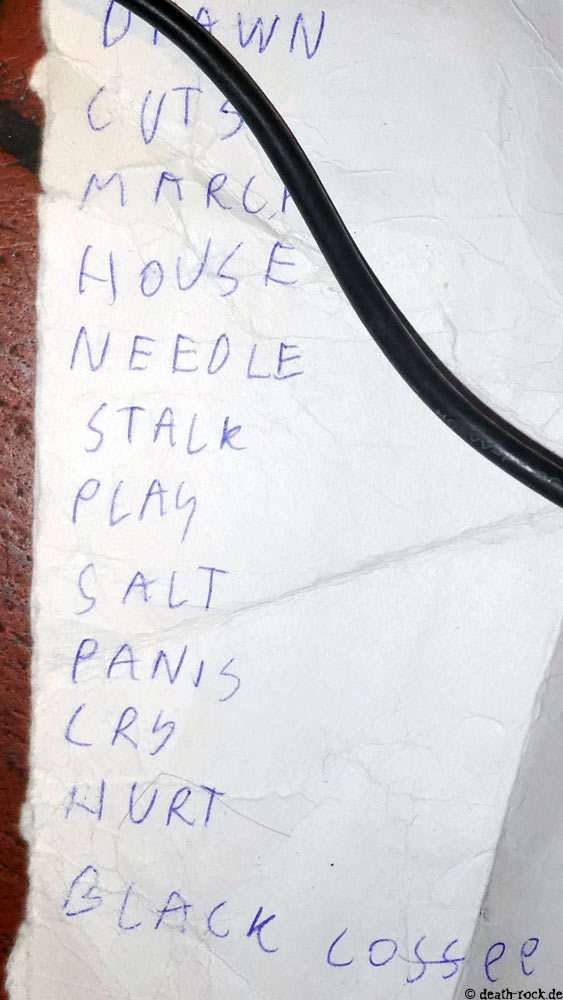 DRAWN
CUTS
MARCH
HOUSE
NEEDLE
STALK
PLAY
SALT
PANIS
CRY
HURT
BLACK coffee
© death-rock.de